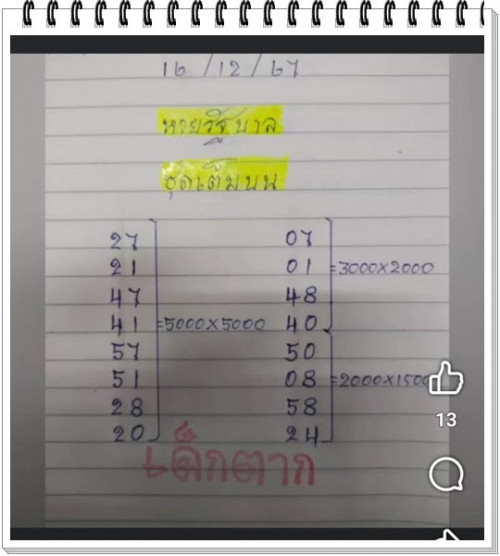 16/12/67
หวยรัฐบาล
ชุดเต็มบน
27
21
47
41 =5000×5000
57
51
28
20
07
01 =3000×2000
48
40
50
08 =2000×150
58
24
เด็กตาก
13